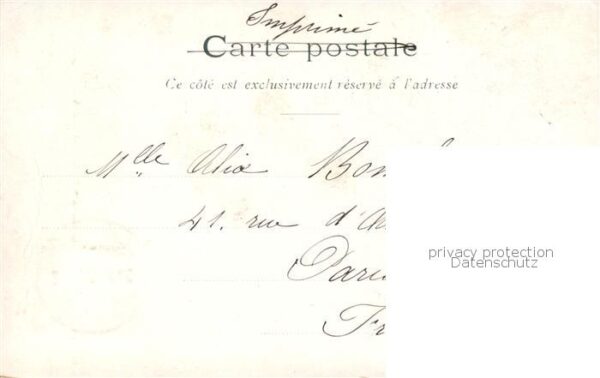 Imprimé
Carte postale
Ce côté est exclusivement réservé à l'adresse
Mlle Alix
41. rue d'
privacy protection
Datenschutz